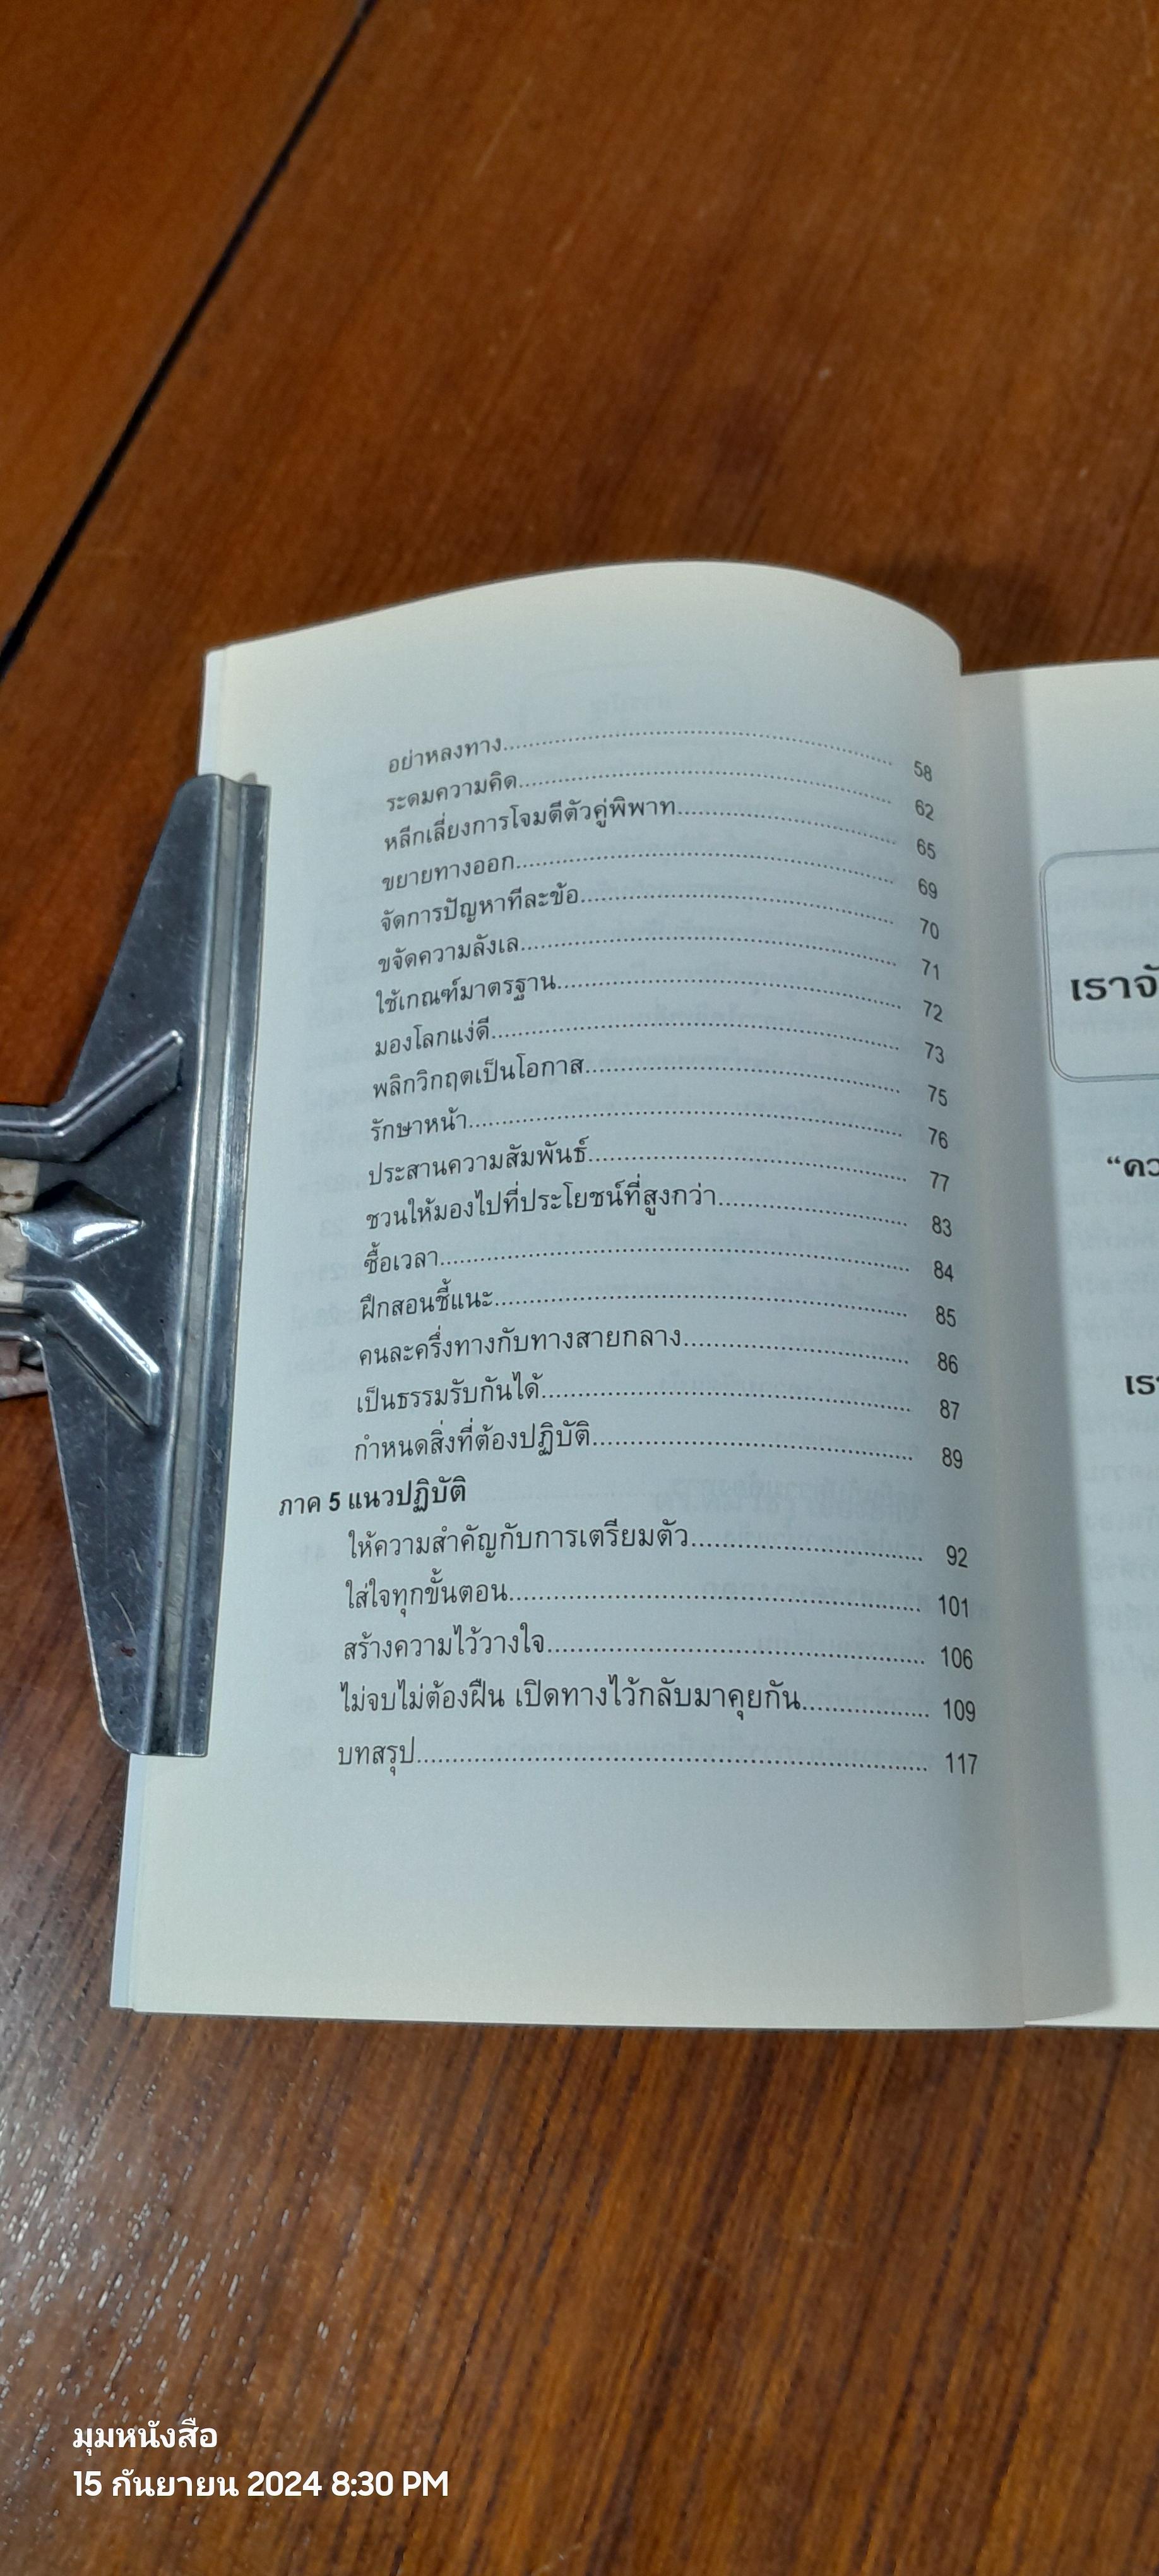 อย่าหลงทาง 58
ระดมความคิด 62
หลีกเลี่ยงการโจมตีตัวคู่พิพาท 65
ขยายทางออก 69
จัดการปัญหาทีละข้อ 70
ขจัดความลังเล 71
ใช้เกณฑ์มาตรฐาน 72
มองโลกแง่ดี 73
พลิกวิกฤตเป็นโอกาส 75
รักษาหน้า 76
ประสานความสัมพันธ์ 77
ชวนให้มองไปที่ประโยชน์ที่สูงกว่า 83
ซื้อเวลา 84
ฝึกสอนชี้แนะ 85
คนละครึ่งทางกับทางสายกลาง 86
เป็นธรรมรับกันได้ 87
กำหนดสิ่งที่ต้องปฏิบัติ 89
ภาค 5 แนวปฏิบัติ
ให้ความสำคัญกับการเตรียมตัว 92
ใส่ใจทุกขั้นตอน 101
สร้างความไว้วางใจ 106
ไม่จบไม่ต้องฝืน เปิดทางไว้กลับมาคุยกัน 109
บทสรุป 117
เราจั
“คว
เร
มุมหนังสือ
15 กันยายน 2024 8:30 PM